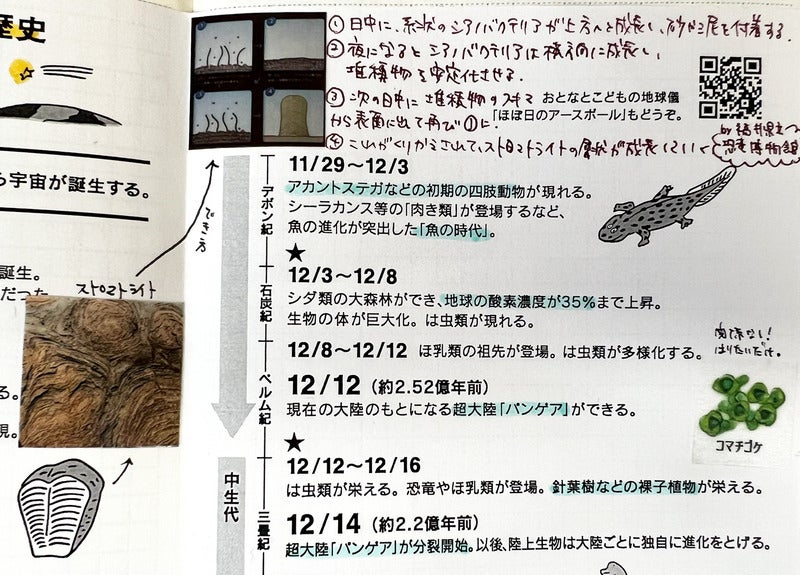 歴史
ら宇宙が誕生する。
誕生。
だった
る。
現。
ストロマトライト
でき方
① 日中に、糸状のシアノバクテリアが上方へと成長し、砂や泥を付着する。
② 夜になるとシアノバクテリアは横方向に成長し、
堆積物を安定化させる。
③ 次の日中に堆積物のスキマ
から表面に出て再び①に。
④ これがくりかえされて、ストロマトライトの層状が成長していく
おとなとこどもの地球儀
「ほぼ日のアースボール」もどうぞ。
by 福井県立
恐竜博物館
デボン紀
11/29〜12/3
アカントステガなどの初期の四肢動物が現れる。
シーラカンス等の「肉き類」が登場するなど、
魚の進化が突出した「魚の時代」。
★
石炭紀
12/3〜12/8
シダ類の大森林ができ、地球の酸素濃度が35%まで上昇。
生物の体が巨大化。は虫類が現れる。
ペルム紀
12/8〜12/12 ほ乳類の祖先が登場。は虫類が多様化する。
12/12（約2.52億年前）
現在の大陸のもとになる超大陸「パンゲア」ができる。
関係ない！
はりたいだけ。
コマチゴケ
★
中生代
三畳紀
12/12〜12/16
は虫類が栄える。恐竜やほ乳類が登場。針葉樹などの裸子植物が栄える。
12/14（約2.2億年前）
超大陸「パンゲア」が分裂開始。以後、陸上生物は大陸ごとに独自に進化をとげる。